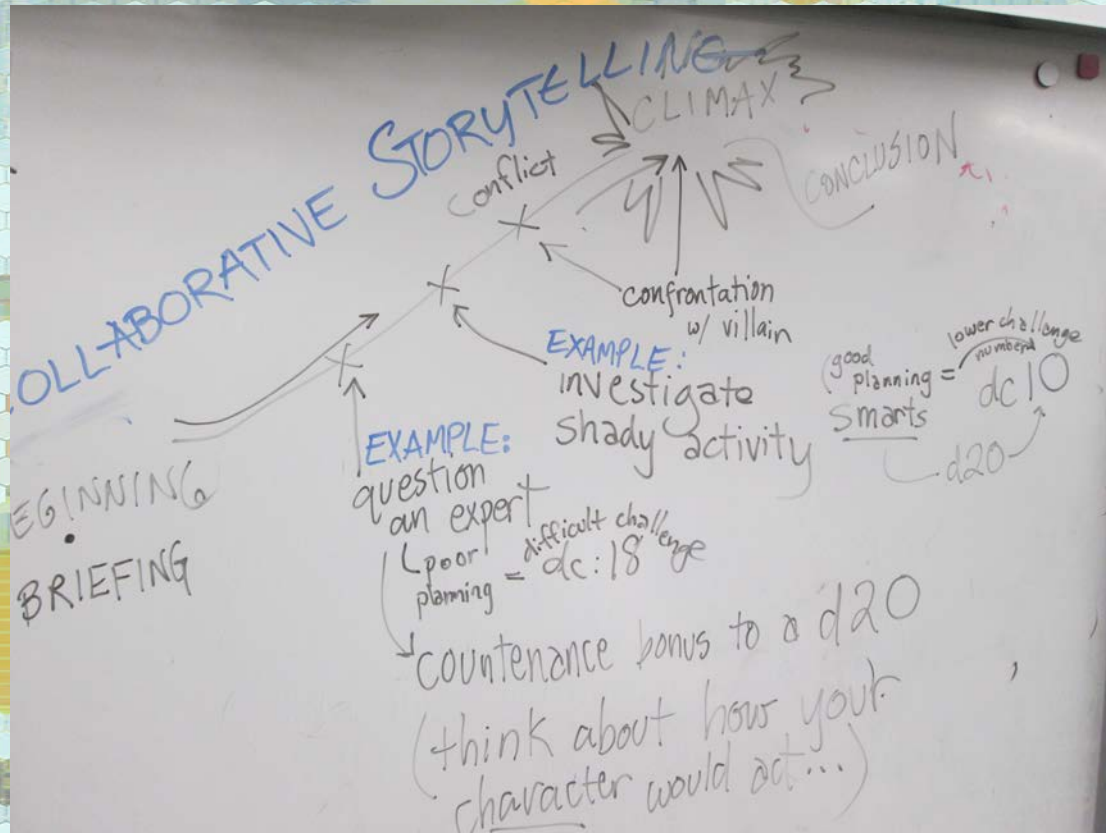 OLLABORATIVE STORYTELLING
CLIMAX
CONCLUSION
conflict
confrontation
w/ villain
EXAMPLE:
investigate
shady activity
(good
planning =
smarts
lower challenge
number)
dc 10
d20
EXAMPLE:
question
an expert
(poor
planning =
difficult challenge
dc: 18
EGINNING
BRIEFING
countenance bonus to a d20
(think about how your
character would act...)